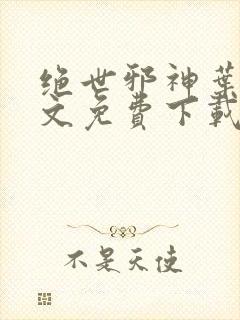 绝世邪神葉
文免费下載
不是天使